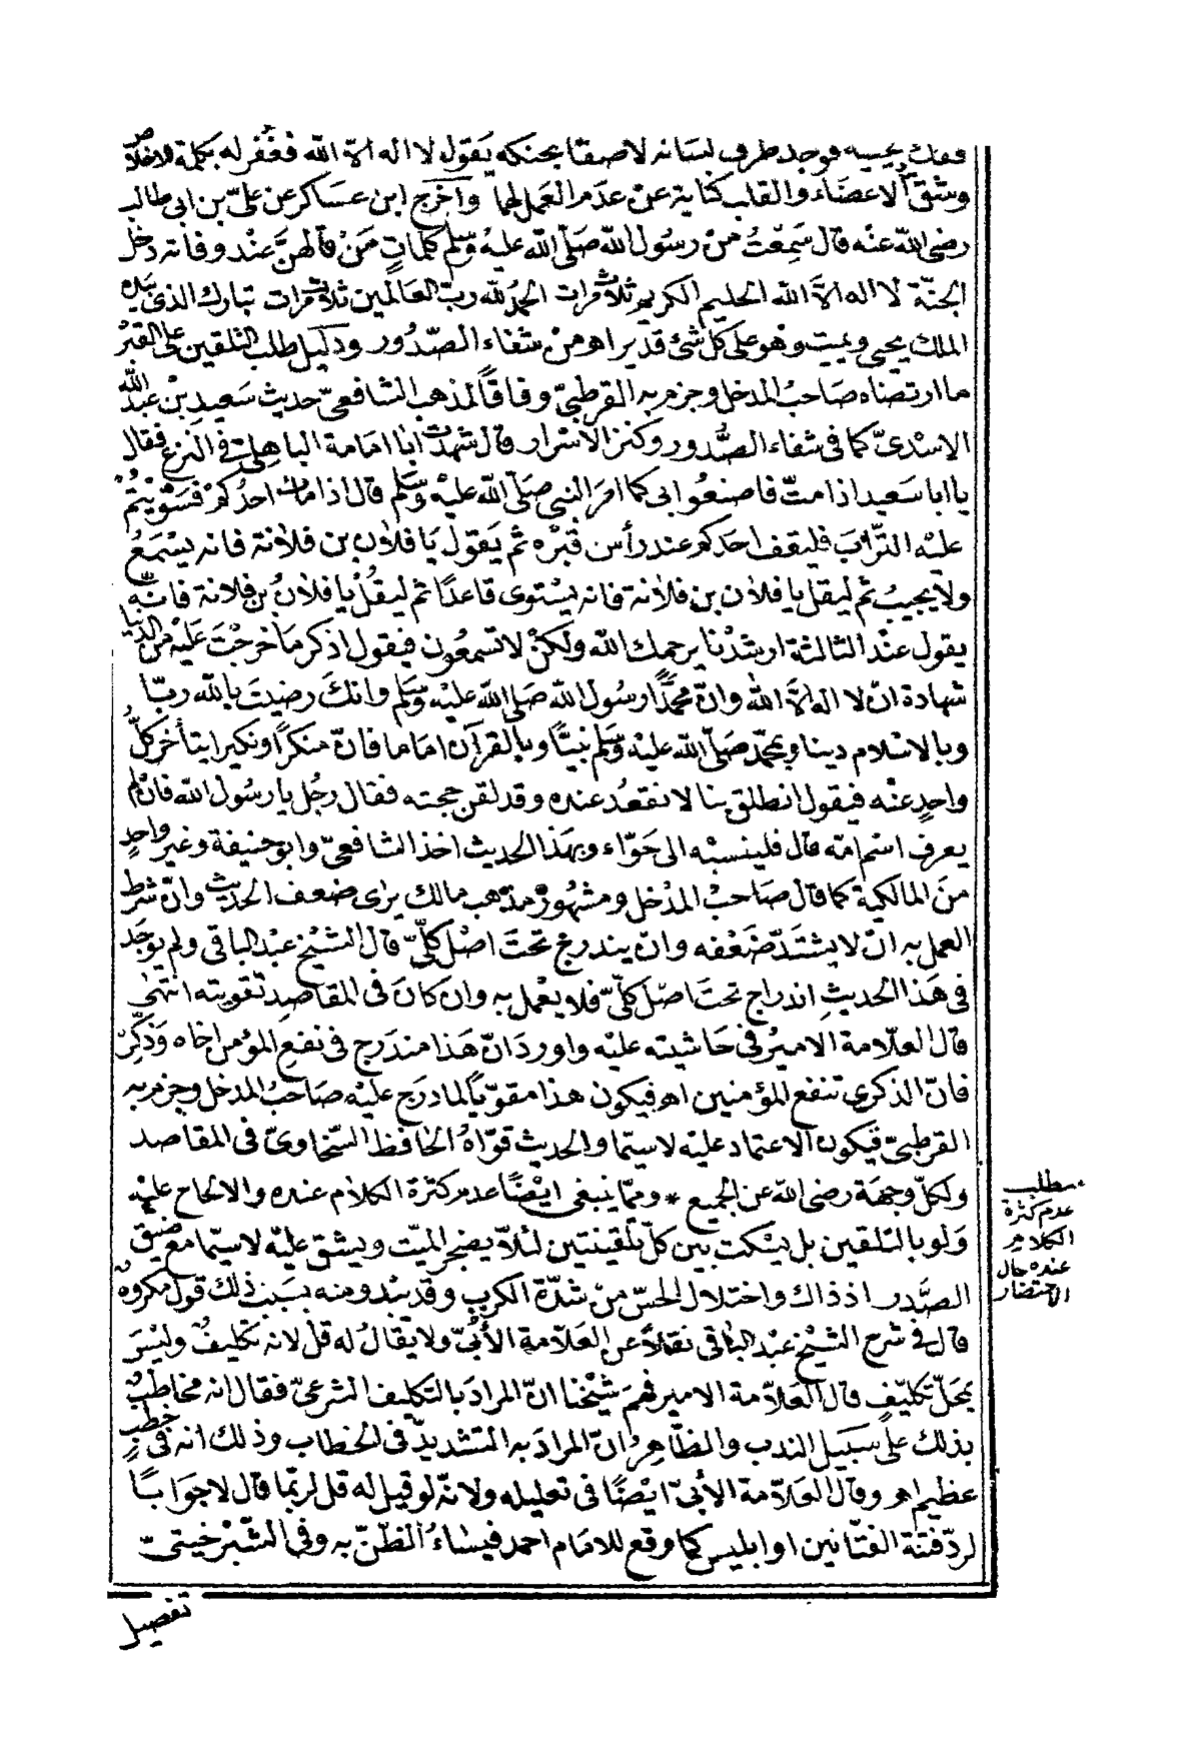 ففك لحييه فوجد طرف لسانه لاصقا بحنكه يقول لا اله الا الله فغفر له بكلمة الاخلاص
وشق الاعضاء والقلب كناية عن عدم العمل لهما وأخرج ابن عساكر عن علىّ بن ابى طالب
رضى الله عنه قال سَمِعْتُ مِنْ رسول الله صَلّى الله عليْه وسَلّم كلماتٍ مَنْ قالهنَّ عند وفاته دخل
الجنّة لا اله الاَّ الله الحليم الكريم ثلاث مرات الحمدُ لله ربّ العالمين ثلاث مرات تبارك الذى بيده
الملك يحيى ويميت وهو على كل شئ قدير اهـ من شفاء الصّدُور ودليل طلب التلقين على القبْر
ما ارتضاه صَاحبُ المدخل وجزم به القرطبىّ وفاقاً لمذهب الشافعىّ حديث سَعيد بْن عبد الله
الاسْدىّ كما فى شفاء الصُّدور وكنز الاسْرار قال شهدْت ابا امَامة الباهلىّ فى النزع فقال
يا ابا سَعيد اذا متّ فاصنعُوا بى كما امَر النبى صَلّى الله عليْه وسَلّم قال اذا مات احدُكمْ فسَوّيْتُمْ
عليْه التّرابَ فليقف احَدكم عند رأس قبْره ثم يَقول يَا فلان بن فلانة فانه يسْمَعُ
ولا يجيبُ ثم ليقل يا فلان بن فلانة فانه يسْتوى قاعدًا ثم ليقُلْ يا فلانُ بن فلانة فانّه
يقول عنْد الثالثة ارشدْنا يرحمك الله ولكنْ لا تسمعُون فيقول اذكر مَا خرجْتَ عَليْه من الدنيا
شهادة انْ لا اله الاَّ الله وانّ محمدًا رسُول الله صَلى الله عليْه وسَلم وانكَ رضيتَ بالله ربّا
وبالاسْلام دينا وبمحمّد صَلّى الله عليْه وسَلم نبيًّا وبالقرآن امَاما فانّ منكرًا ونكيرا يتأخر كلُّ
واحدٍ عنْه فيقول انطلق بنا لا نقعُد عنده وقد لقن حجته فقال رجُل يا رسُول الله فان لم
يعرف اسْم امّه قال فلينسبْه الى حَوّاء وبهَذا الحديث اخذ الشافعىّ وابو حنيفة وغير واحدٍ
منَ المالكية كما قال صَاحبُ المدْخل ومشهُورْ مذهب مالك يرى ضعف الحديث وانّ شرط
العمل به انْ لا يشتَدّ ضَعْفه وان يندرج تحتَ اصْل كلّىّ قال الشيْخ عبْد الباقى ولم يوجَد
فى هَذا الحديثِ اندراج تحتَ اصْل كلّىّ فلا يعْمل به وان كانَ فى المقاصِد تقويته انتهى
قال العلّامة الاميرُ فى حَاشيته عليْه واوردَ انّ هَذا مندَرج فى نفع المؤمن اخاه وَذَكِّرْ
فانّ الذكرى تنفع المؤمنين اهـ فيكون هذا مقوّياً لما درَج عليْه صَاحبُ المدخل وجزم به
القرطبىّ فيكون الاعتماد عليْه لاسيّما والحديث قوّاهُ الحَافظ السّخاوىّ فى المقاصد
ولكلّ وجهَة رضى الله عن الجميع * وممّا ينبغى ايْضًا عدم كثرة الكلام عنده والالحاح عليْه
وَلو بالتلقين بل يسْكت بين كلّ تلقينتين لئلّا يضجر الميّت ويشق عليْه لاسيّما مع ضيق
الصَّدر اذ ذاك واختلال الحسّ منْ شدّة الكرب وقد يبْدو منه بسَببْ ذلكَ قول مكروه
قال فى شرح الشيْخ عبْد الباقى نقلاً عن العَلّامة الأُبّىّ ولا يقالُ له قل لانه تكليفٌ وليْسَ
بمحَلّ تكليْفٍ قال العَلاّمة الامير فهمَ شيْخنا انّ المرادَ بالتكليف الشرعىّ فقال انه مخاطبٌ
بذلك على سَبيل الندب والظّاهرُ انّ المرادَ به التشديدُ فى الخطاب وذلك انه فى خطبٍ
عظيم اهـ وقال العَلاّمة الأُبىّ ايْضًا فى تعليله ولانّه لو قيل له قل لربّما قال لا جَوَابًا
لردّ فتنة الفتّانين او ابليس كما وقع للامَام احمد فيسَاءُ الظّنّ به وفى الشّبْرخيتىّ
مطلب
عدم كثرة
الكلام
عنده حال
الاحتضار
تفصيل